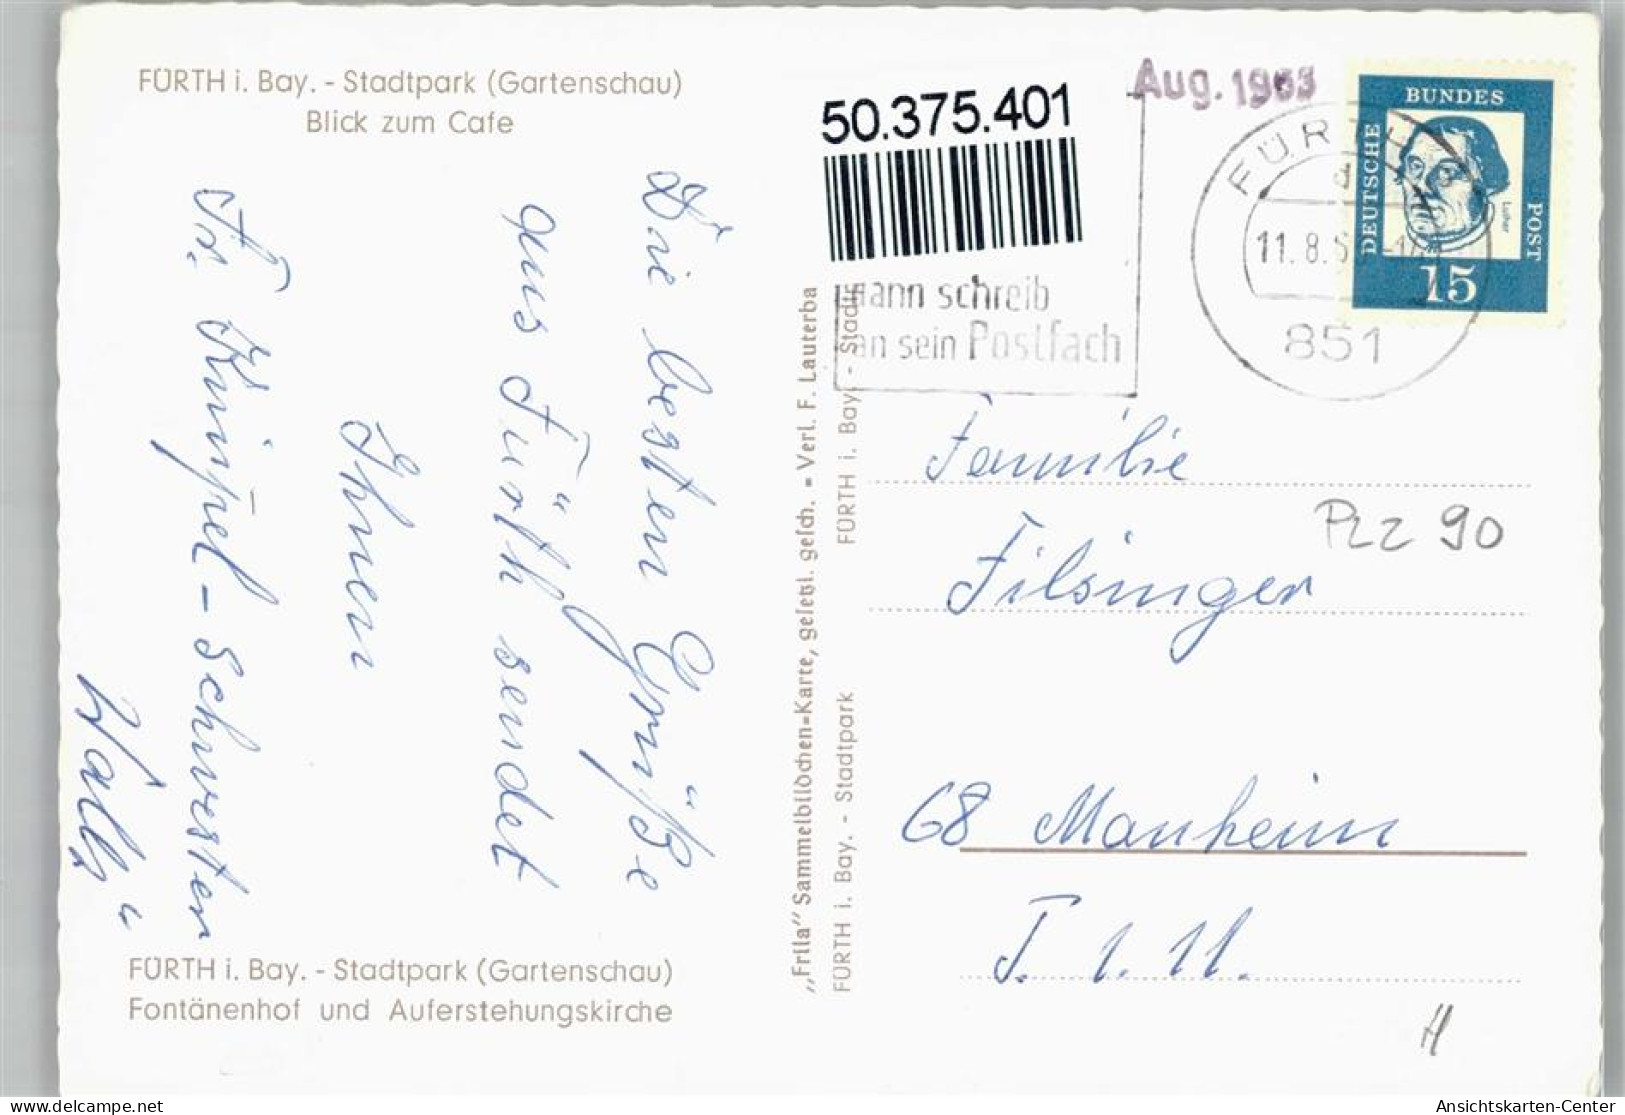 FÜRTH i. Bay. - Stadtpark (Gartenschau)
Blick zum Cafe
Die besten Grüße
aus Fürth sendet
Ihnen
Fr. Kimpel-Schwester
"Wally"
FÜRTH i. Bay. - Stadtpark (Gartenschau)
Fontänenhof und Auferstehungskirche
„Frila" Sammelbildchen=Karte, gesetzl. gesch. = Verl. F. Lauterba
FÜRTH i. Bay. - Stadtpark
FÜRTH i. Bay. - Stadtp
50.375.401
mann schreib
an sein Postfach
Aug. 1963
FÜRTH
a
11.8.6
851
DEUTSCHE
BUNDES
POST
Luther
15
Familie
Filsinger
PLZ 90
68 Manheim
T. 1. 11.
H
delcampe.net
Ansichtskarten-Center